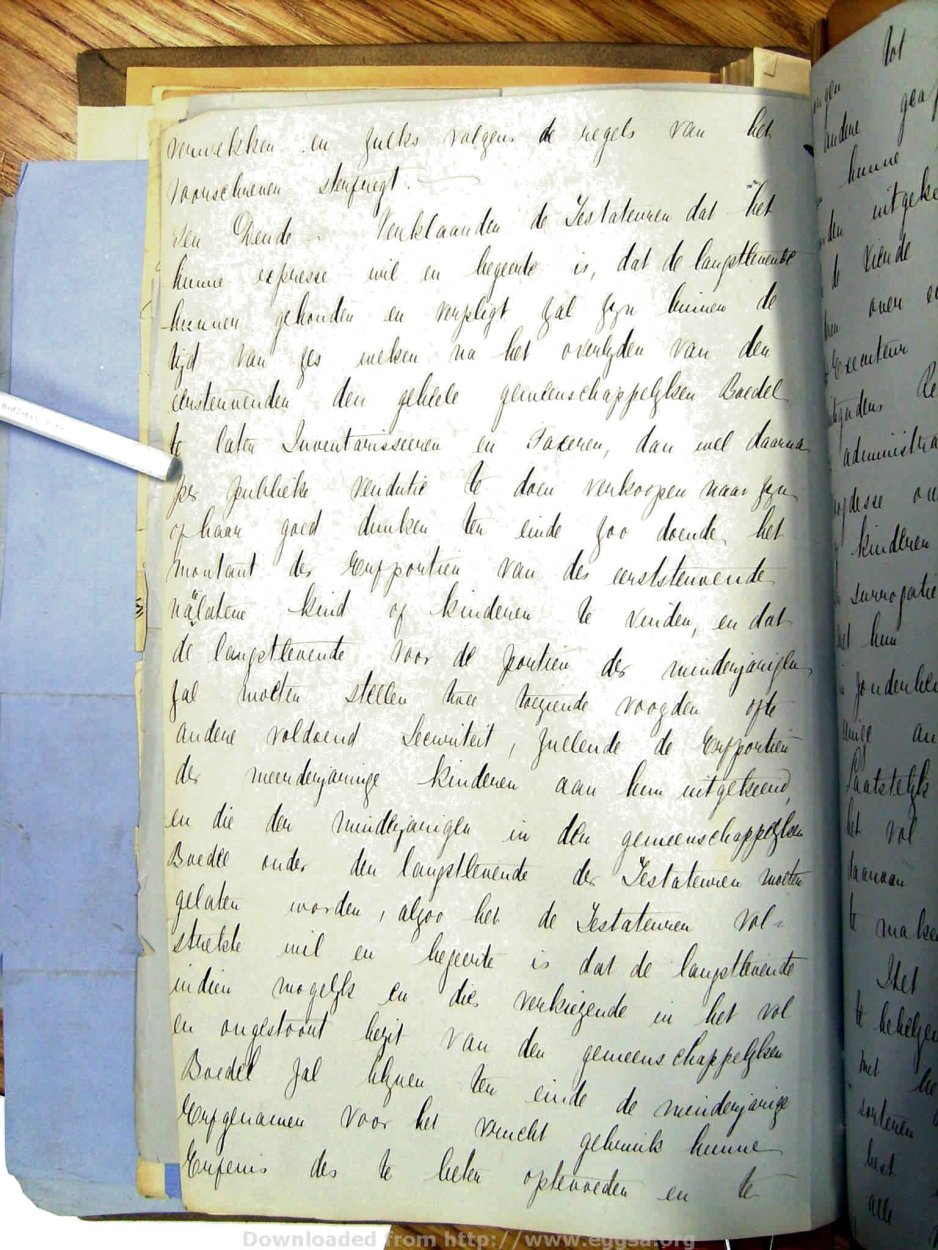 verwekken en zulks volgens de regels van het
voorschreven sterfregt.
Ten Derde. Verklaarden de Testateuren dat het
hunne expresse wil en begeerte is, dat de langstlevende
hunner gehouden en verpligt zal zyn binnen de
tijd van zes weken na het overlyden van den
eerstervenden den geheele gemeenschappelyken Boedel
te laten Inventarisseren en Taxeren, dan wel daarna
per publieke vendutie te doen verkoopen naar zyn
of haar goed dunken ten einde zoo doende het
montant der Erfportien van des eerststervende
nälatene kind of kinderen te vinden, en dat
de langstlevende voor de portien der minderjarigen
zal moeten stellen twee toeziende voogden ofte
andere voldoend Securiteit, zullende de Erfportien
der meenderjarige kinderen aan hun uitgekeerd,
en die den minderjarigen in den gemeenschappelyken
Boedel onder den langstlevende der Testateuren moeten
gelaten worden, alzoo het de Testateuren vol-
strekte wil en begeerte is dat de langstlevende
indien mogelyk en dies verkiezende in het vol
en ongestoort bezit van den gemeenschappelyken
Boedel zal blyven ten einde de minderjarige
Erfgenamen voor het vrucht gebruik hunne
Erfenis des te beter optevoeden en te
tot
andere
hunne
uitgeke
te vierde
over
Executeur
administra
kinderen
surrogatie
met hun
zonderhei
Laatstelyk
het vol
daarvan
te maken
Het
met
best
alle
Downloaded from http://www.eggsa.org